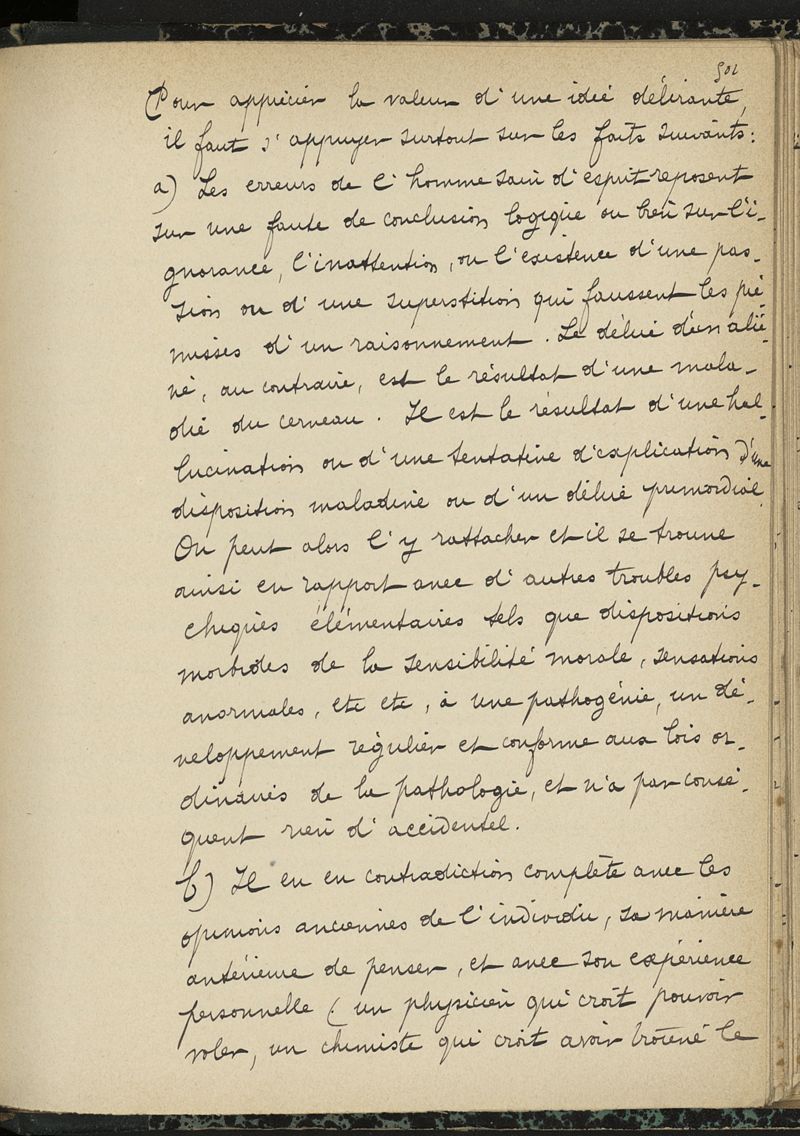 501
Pour apprécier la valeur d'une idée délirante,
il faut s'appuyer surtout sur les faits suivants:
a) Les erreurs de l'homme sain d'esprit reposent
sur une faute de conclusion logique ou bien sur l'i-
gnorance, l'inattention, ou l'existence d'une pas-
sion ou d'une superstition qui faussent les pré-
misses d'un raisonnement. Le délire d'un alié-
né, au contraire, est le résultat d'une mala-
die du cerveau. Il est le résultat d'une hal-
lucination ou d'une tentative d'explication d'une
disposition maladive ou d'un délire primordial.
On peut alors l'y rattacher et il se trouve
ainsi en rapport avec d'autres troubles psy-
chiques élémentaires tels que dispositions
morbides de la sensibilité morale, sensations
anormales, etc etc, à une pathogénie, un dé-
veloppement régulier et conforme aux lois or-
dinaires de la pathologie, et n'a par consé-
quent rien d'accidentel.
b) Il en en contradiction complète avec les
opinions anciennes de l'individu, sa manière
antérieure de penser, et avec son expérience
personnelle (un physicien qui croit pouvoir
voler, un chimiste qui croit avoir trouvé le